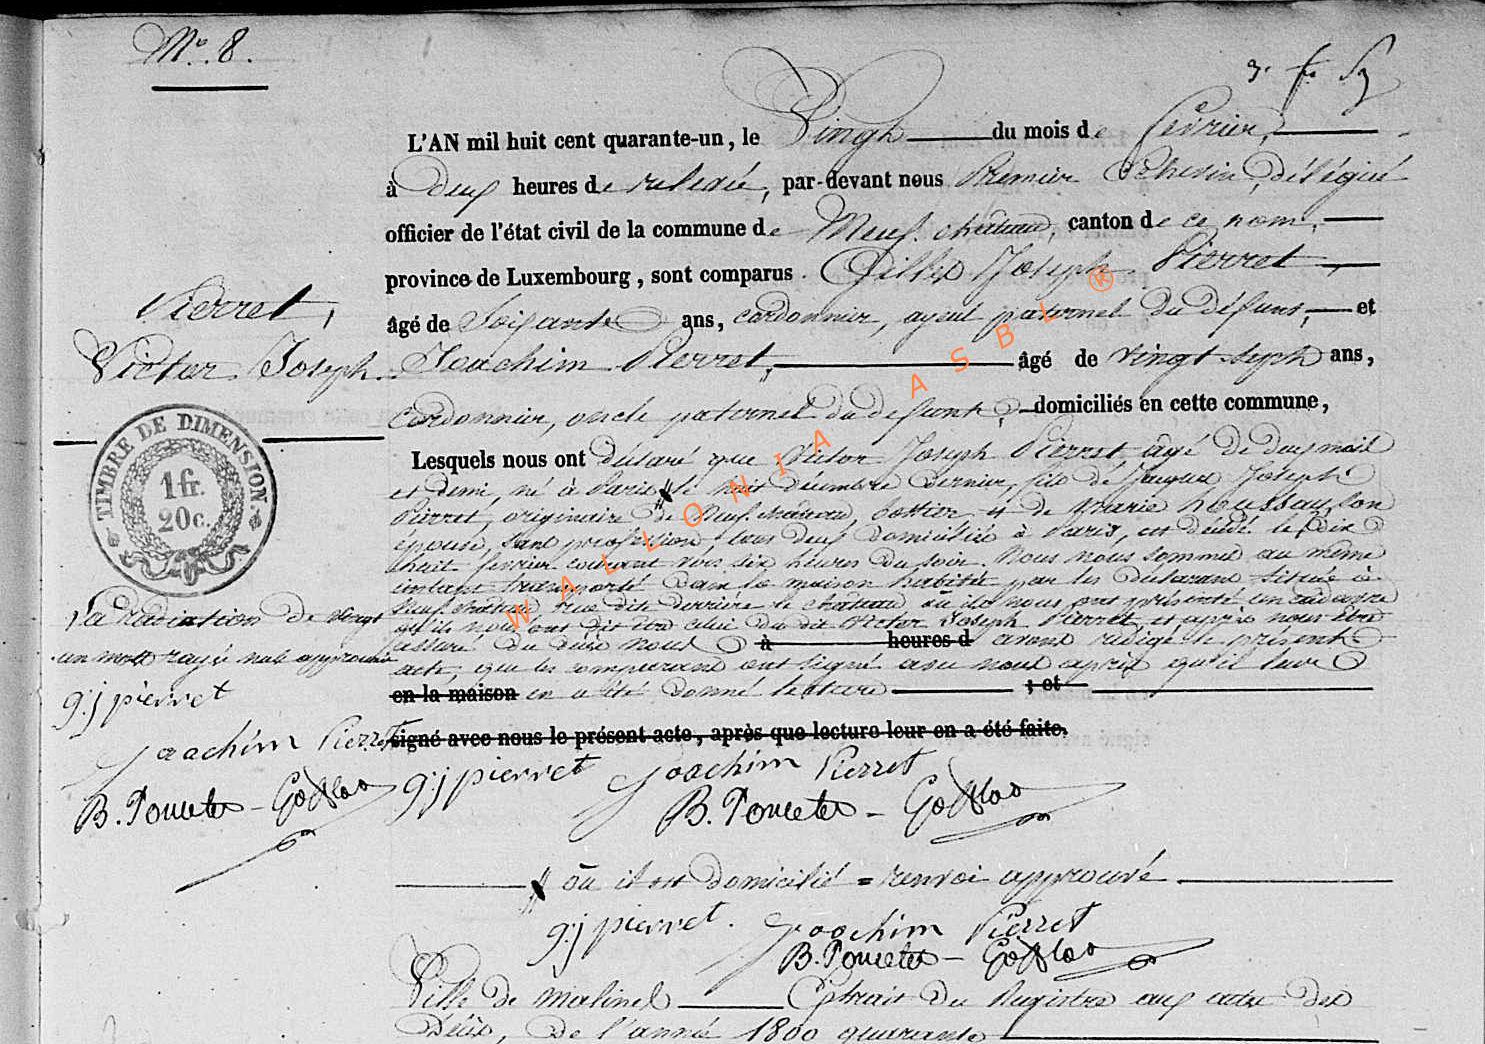 N.° 8.
3. f. 
L'AN mil huit cent quarante-un, le Vingh du mois de Février,
à Deux heures de relevée, par-devant nous Premier Echevin, délégué
officier de l'état civil de la commune de Neufchâteau, canton de ce nom,
province de Luxembourg, sont comparus Gilles Joseph Pierret
âgé de Soixante ans, cordonnier, ayeul paternel du défunt, et
Joachim Pierret, âgé de vingt sept ans,
cordonnier, oncle paternel du defunt, domiciliés en cette commune,
Lesquels nous ont déclaré que Victor Joseph Pierret âgé de deux mois
et demi, né à Paris le huit décembre dernier, fils de Jacques Joseph
Pierret, originaire de Neufchâteau, bottier, et de Marie Houssau, son
épouse, sans profession, tous deux domiciliés à Paris, est décédé le dix
huit fevrier courant vers six heures du soir. Nous nous sommes au même
instant transporté dans la maison habitée par les déclarans située à
Neufchâteau rue dite derrière le château où ils nous ont présenté un cadavre
qu'ils nous ont dit être celui du dit Victor Joseph Pierret, et après nous être
assuré du décès nous à heures d avons rédigé le présent
acte, que les comparans ont signé avec nous après qu'il leur
en la maison en a été donné lecture ; et
signé avec nous le présent acte, après que lecture leur en a été faite.
g:j pierret Joachim Pierret
B. Poncelet - 
où il est domicilié = renvoi approuvé
g:j pierret. Joachim Pierret
B. Poncelet - 
Ville de Malines Extrait du Registre aux actes des
Décès, de l'année 1800 quarante
Pierret,
Victor Joseph
TIMBRE DE DIMENSION
1 fr.
20 c.
La Radiation de vingt
un mots rayés nuls approuvée
g:j pierret
Joachim Pierret
B. Poncelet - 
WALLONIA ASBL ®